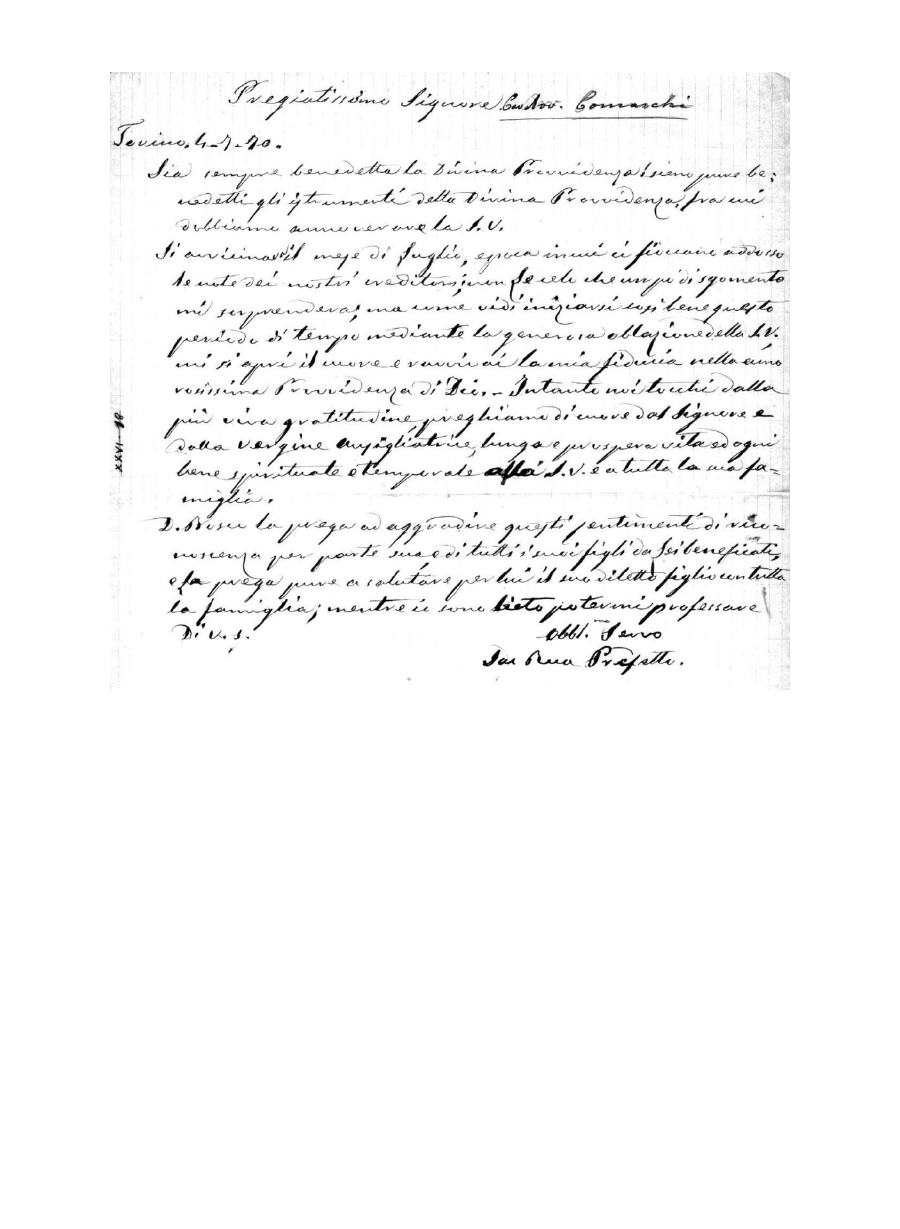 Pregiatissimo Signore Cav Avv. Comaschi
Torino, 4-7-70.
Sia sempre benedetta la Divina Provvidenza! sieno pure be=
nedetti gli istrumenti della Divina Provvidenza, fra cui
dobbiamo annoverare la S.V.
Si avvicinava il mese di luglio, epoca in cui ci fioccano addosso
le note dei nostri creditori; non Le celo che un po' di sgomento
mi sorprendeva; ma come vidi iniziarsi così bene questo
periodo di tempo mediante la generosa oblazione della S.V.
mi si aprì il cuore e ravvivai la mia fiducia nella amo
rosissima Provvidenza di Dio. - Intanto noi tocchi dalla
più viva gratitudine, preghiamo di cuore dal Signore e
dalla Vergine Ausigliatrice, lunga e prospera vita ed ogni
bene spirituale e temporale alla S.V. e a tutta la sua fa-
miglia.
D. Bosco la prega ad aggradire questi sentimenti di rico=
noscenza per parte sua e di tutti i suoi figli da Lei beneficati,
e la prega pure a salutare per lui il suo diletto figlio con tutta
la famiglia; mentre io sono lieto potermi professare
Di V. S.
Obbl.mo Servo
Sac Rua Prefetto.
XXVI-98